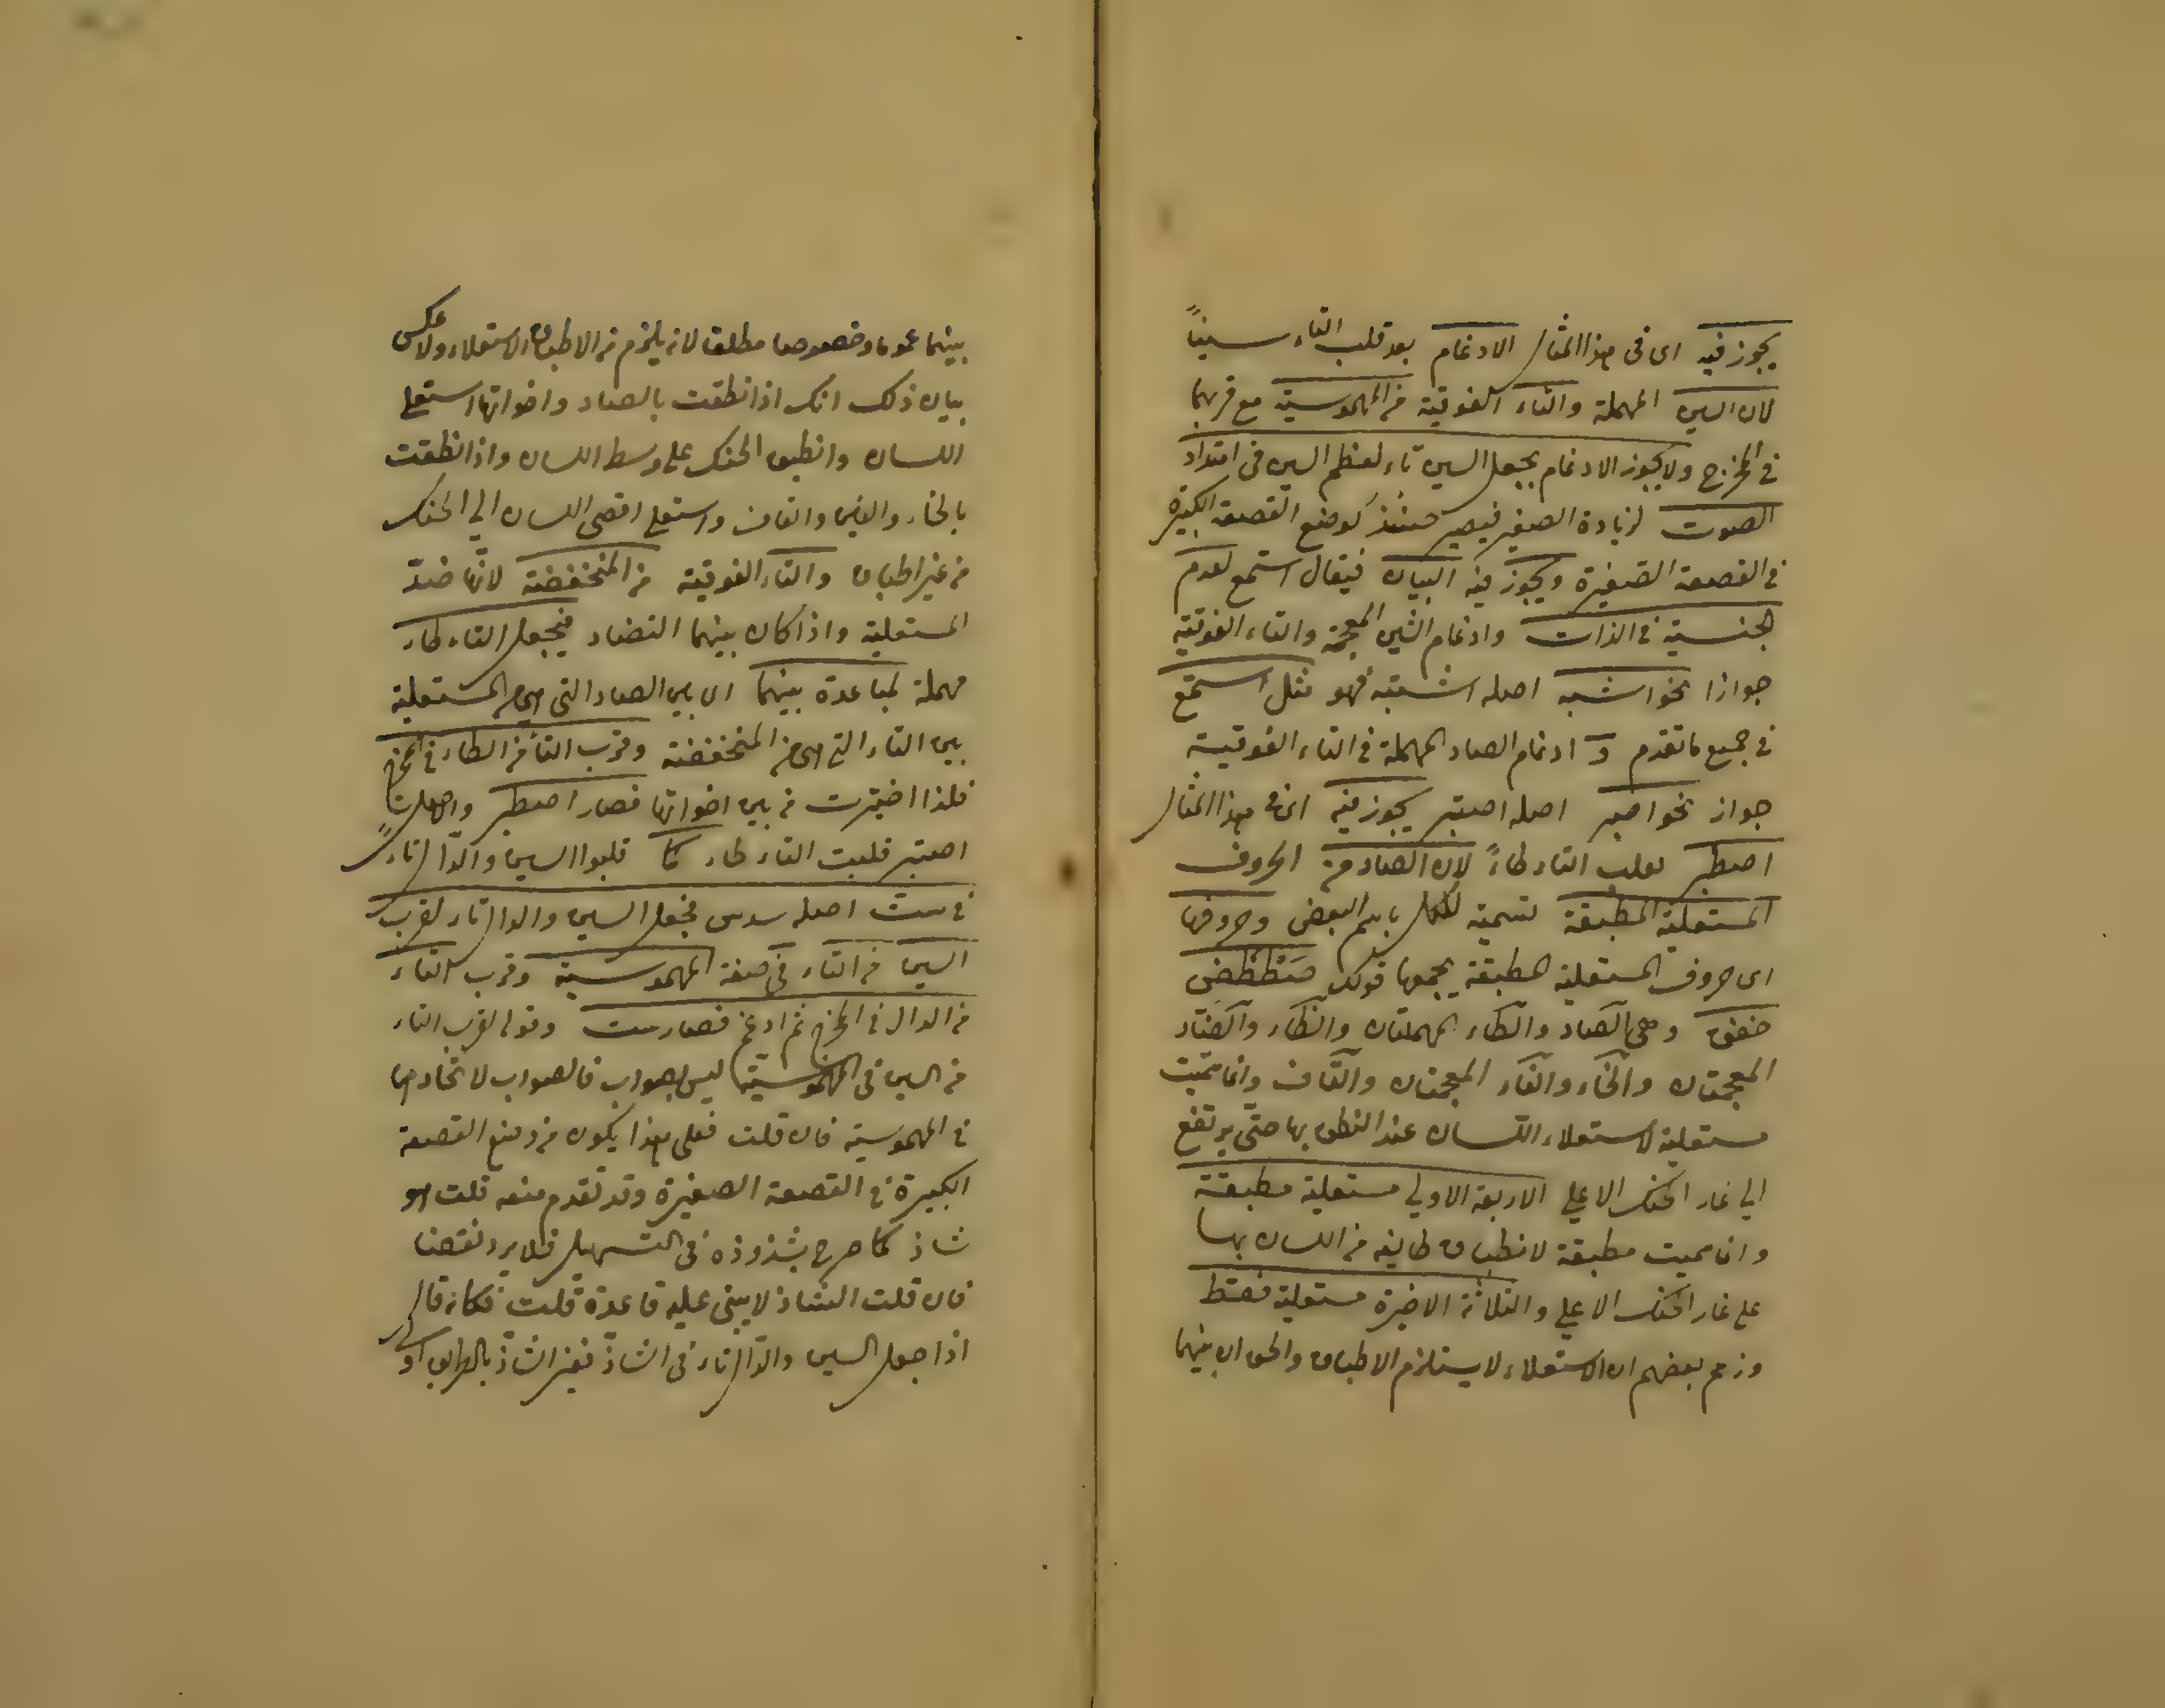 يجوز فيه اى فى هذا المثال الادغام بعد قلب التاء سيناً
لان السين المهملة والتاء الفوقية من المهموسية مع قربهما
فى المخرج ولا يجوز الادغام بجعل السين تاء لعظم السين فى امتداد
الصوت لزيادة الصفير فيصير حينئذ كوضع القصعة الكبيرة
فى القصعة الصغيرة ويجوز فيه البيان فيقال استمع لعدم
الجنسية فى الذات وادغام الشين المعجمة والتاء الفوقية
جوازا نحو اشبه اصله اشتبه فهو مثل استمع
فى جميع ما تقدم و ادغام الصاد المهملة فى التاء الفوقية
جواز نحو اصبر اصله اصتبر يجوز فيه اى فى هذا المثال
اصطبر بقلب التاء طاءً لان الصاد من الحروف
المستعلية المطبقة تسمية للكل باسم البعض وحروفها
اى حروف المستعلية المطبقة يجمعها قولك صَتطظَض
خغق وهى الصاد والطاء المهملتان والظاء والضاد
المعجمتان والخاء والغاء المعجمتان والقاف وانما سميت
مستعلية لاستعلاء اللسان عند النطق بها حتى يرتفع
الى غار الحنك الاعلى الاربعة الاولى مستعلية مطبقة
وانما سميت مطبقة لانطباق طايفه من اللسان بها
على غار الحنك الاعلى والثلاثة الاخيرة مستعلية فقط
وزعم بعضهم ان الاستعلاء لا يستلزم الاطباق والحق ان بينهما
بينهما عموما وخصوصا مطلقا لانه يلزم من الاطباق الاستعلاء ولا عكس
بيان ذلك انك اذا نطقت بالصاد واخواتها استعلى
اللسان وانطبق الحنك على وسط اللسان واذا نطقت
بالخاء والغين والقاف واستعلى اقصى اللسان الى الحنك
من غير اطباق والتاء الفوقية من المنخفضة لانها ضدّ
المستعلية واذا كان بينهما التضاد فيجعل التاء طاء
مهملة لمباعدة بينهما اى بين الصاد التى هى من المستعلية
بين التاء التى هى من المنخفضة وقرب التاء من الطاء فى المخرج
فلذا اختيرت من بين اخواتها فصار اصطبر واصله
اصتبر قلبت التاء طاء كما قلبوا السين والدال تاءً
فى ست اصله سدس فجعل السين والدال تاء لقرب
السين من التاء فى صفة المهموسية وقرب التاء
من الدال فى المخرج ثم ادغم فصار ست وقوله لقرب التاء
من السين فى المهموسية ليس بصواب فالصواب لاتحادهما
فى المهموسية فان قلت فعلى هذا يكون من وضع القصعة
الكبيرة فى القصعة الصغيرة وقد تقدم منعه قلت هو
شاذ كما صرح بشذوذه فى التسهيل فلا يرد نقضا
فان قلت الشاذ لا يبنى عليه قاعدة قلت فكانه قال
اذا جعل السين والدال تاء فى الشاذ فغير الشاذ بالطريق اولى